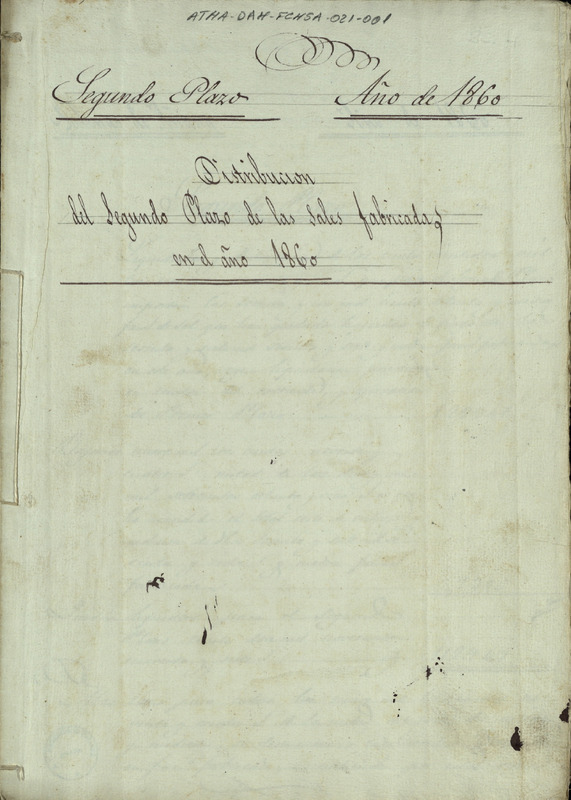 ATHA-DAH-FCNSA-021-001
Segundo Plazo Año de 1860
Distribucion
del Segundo Plazo de las sales fabricadas
en el año 1860